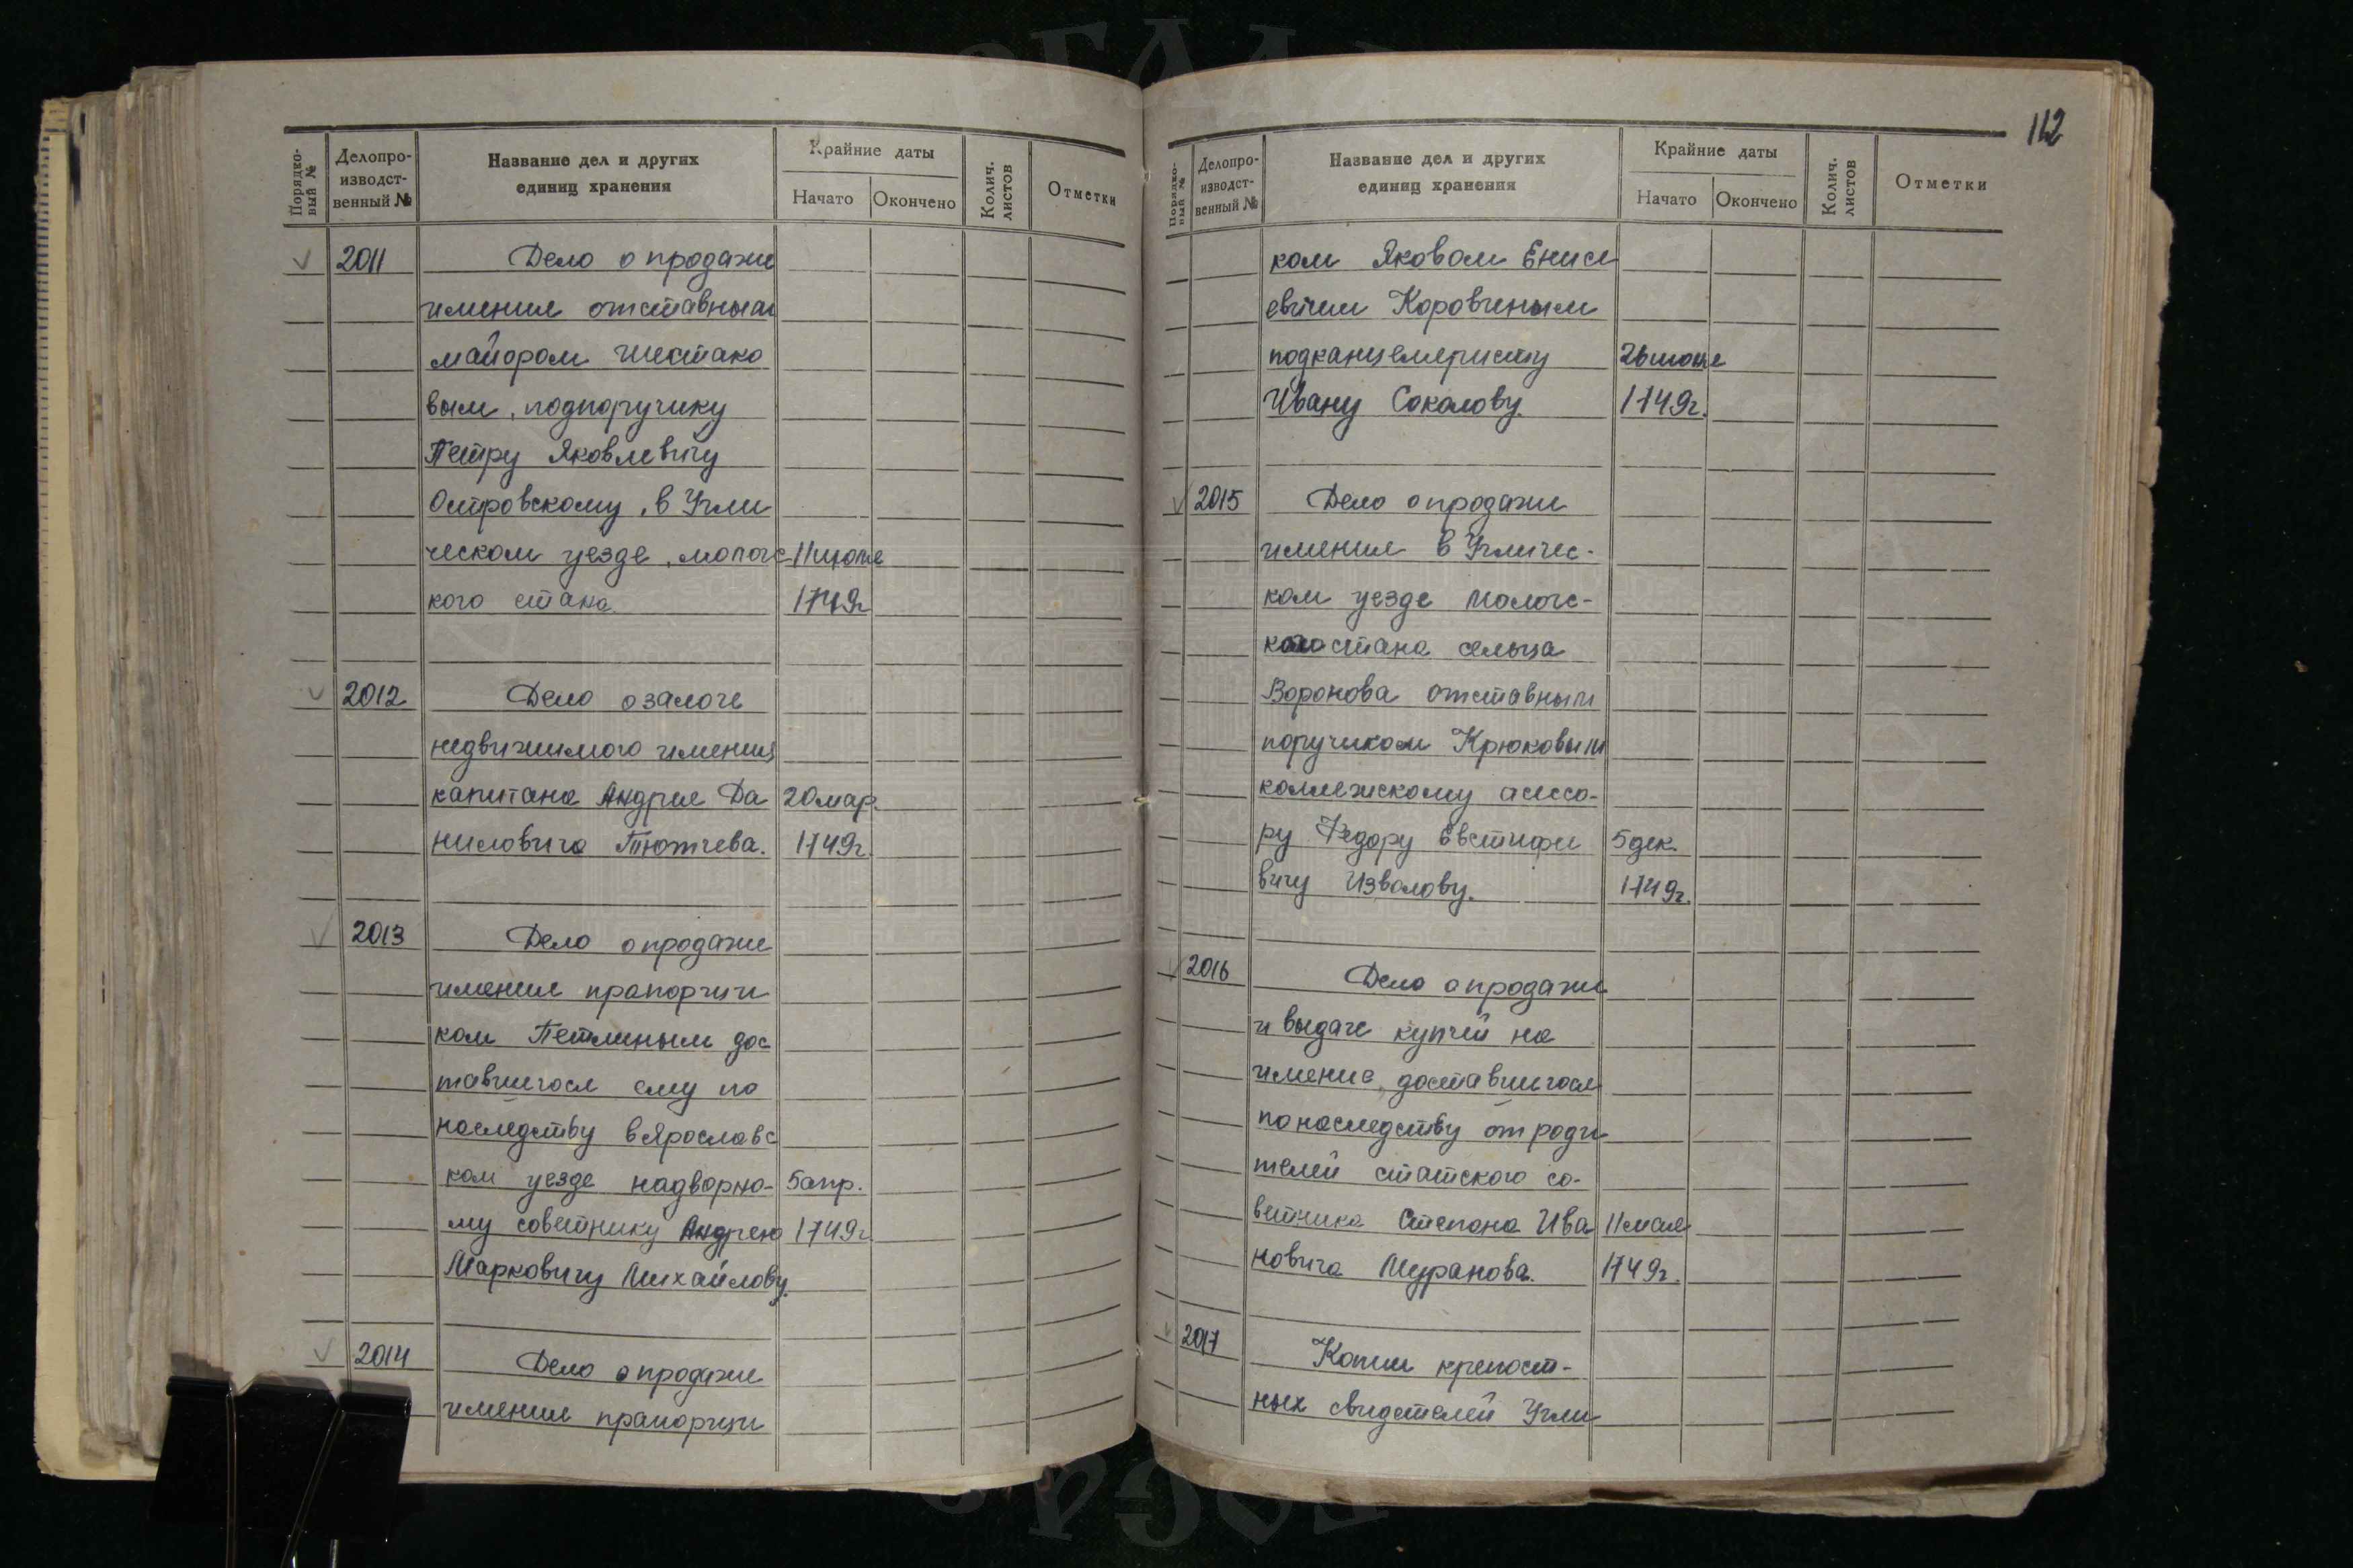 112
Порядко-
вый №
Делопро-
изводст-
венный №
Название дел и других
единиц хранения
Крайние даты
Начато
Окончено
Колич.
листов
Отметки
2011
Дело о продаже
имения отставным
майором Шестако
вым, подпоручику
Петру Яковлевичу
Островскому, в Угли
ческом уезде, молоčс 11 июля
кого стана 1749г
2012 Дело о залоге
недвижимого имения
капитана Андрея Да 20 мар.
ниловича Тютчева. 1749г.
2013 Дело о продаже
имения прапорщи
ком Петлиным дос
тавшегося ему по
наследству в Ярославс
ком уезде надворно- 5 апр.
му советнику Андрею 1749г
Марковичу Михайлову.
2014 Дело о продаже
имения прапорщи
Порядко-
вый №
Делопро-
изводст-
венный №
Название дел и других
единиц хранения
Крайние даты
Начато
Окончено
Колич.
листов
Отметки
ком Яковом Енисе
евичем Коровиным
подканцеляристу
Ивану Соколову. 1749г.
2015 Дело о продаже
имения в Угличес-
ком уезде Мологс-
кого стана сельца
Воронова отставным
поручиком Крюковым
коллежскому асессо-
ру Федору Евстифи 5 дек.
вичу Изволову. 1749г.
2016 Дело о продаже
и выдаче купчей на
имение, доставшегося
по наследству от роди
телей статского со-
ветника Степана Ива 11 мая
новича Муранова. 1749г.
2017 Копии крепост-
ных свидетелей Угли